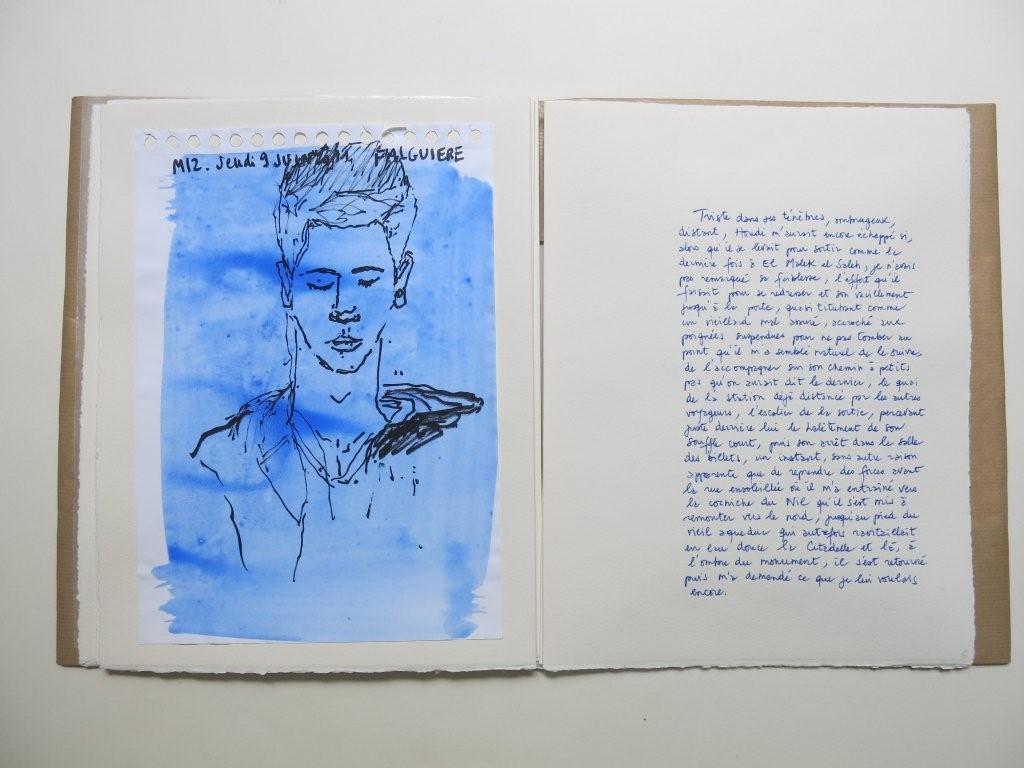 M12. Jeudi 9 JUIN FALGUIERE
Triste dans ses ténèbres, ombrageux,
distant, Houdi m'aurait encore échappé si,
alors qu'il se levait pour sortir comme la
dernière fois à El Malek el Saleh, je n'avais
pas remarqué sa faiblesse, l'effort qu'il
faisait pour se redresser et son vacillement
jusqu'à la porte, quasi titubant comme
un vieillard mal assuré, accroché aux
poignées suspendues pour ne pas tomber au
point qu'il m'a semblé naturel de le suivre,
de l'accompagner sur son chemin à petits
pas qu'on aurait dit le dernier, le quai
de la station déjà distancé par les autres
voyageurs, l'escalier de la sortie, percevant
juste derrière lui le halètement de son
souffle court, puis son arrêt dans la salle
des billets, un instant, sans autre raison
apparente que de reprendre des forces avant
la rue ensoleillée où il m'a entraîné vers
la corniche du Nil qu'il s'est mis à
remonter vers le nord, jusqu'au pied du
vieil aqueduc qui autrefois ravitaillait
en eau douce la Citadelle et là, à
l'ombre du monument, il s'est retourné
puis m'a demandé ce que je lui voulais
encore.